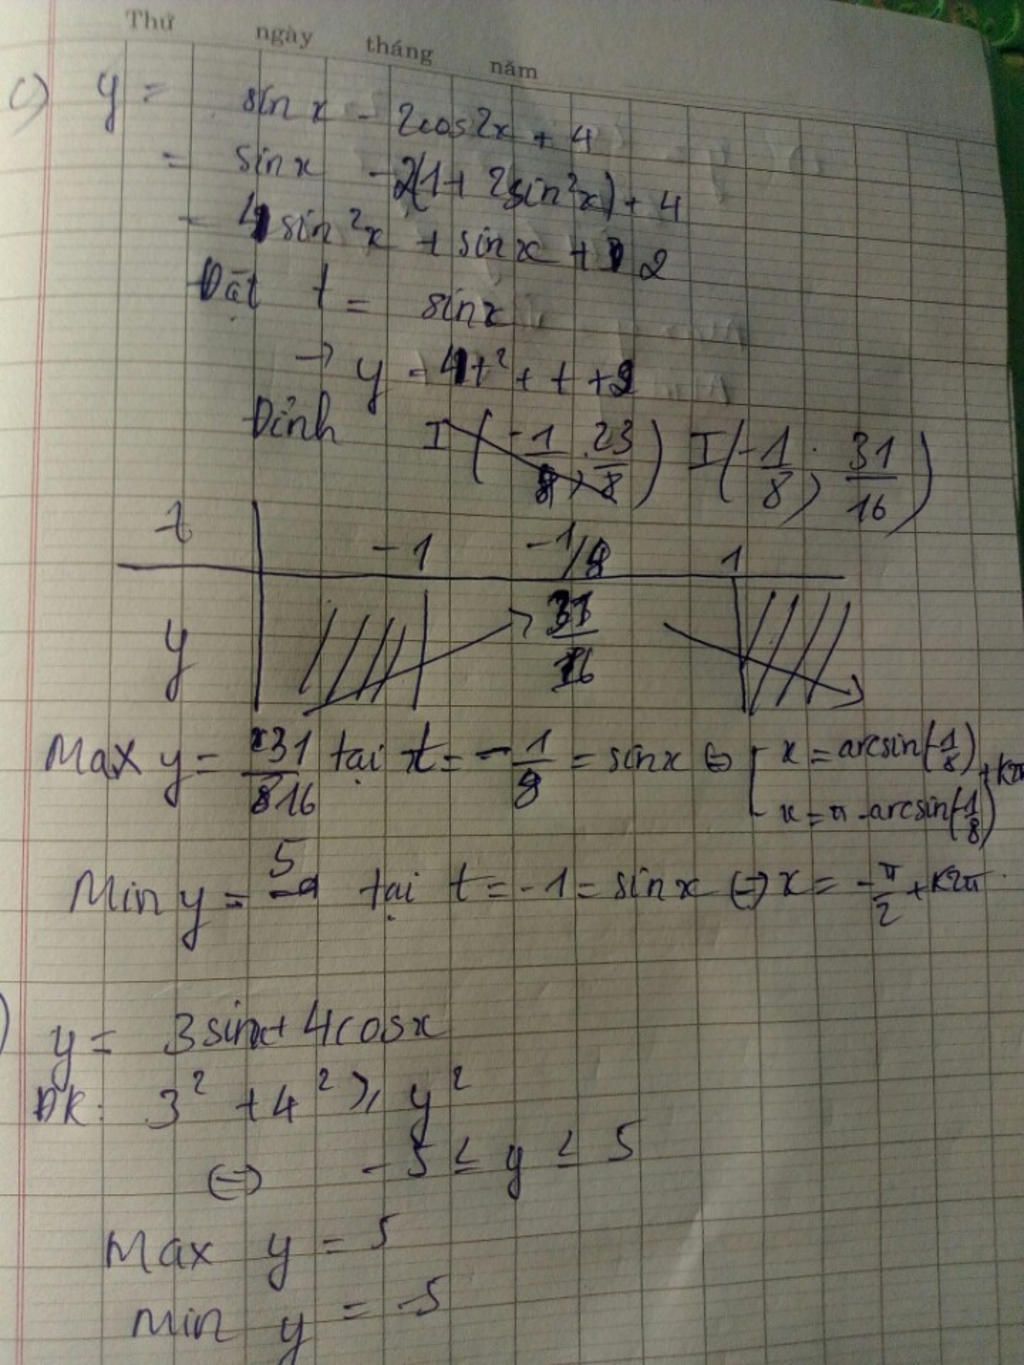 Thứ ngày tháng năm
c) y = sinx - 2cos2x + 4
= sinx - 2(1 + 2sin²x) + 4
= 4sin²x + sinx + 2
Đặt t = sinx
→ y = 4t² + t + 2
Đỉnh I(-1/8; 23/8) I(-1/8; 31/16)
t -1 -1/8 1
y 31/16
Max y = 31/16 tại t = -1/8 = sinx ⇔ [ x = arcsin(-1/8) + k2π
x = π - arcsin(-1/8)
Min y = 5 tại t = -1 = sinx ⇔ x = -π/2 + k2π
) y = 3sinx + 4cosx
ĐK: 3² + 4² ≥ y²
⇔ -5 ≤ y ≤ 5
Max y = 5
Min y = -5